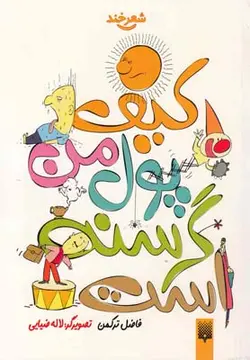 شعرخند
کیف
پول من
گرسنه
است
فاضل ترکمن تصویرگر: لاله ضیایی